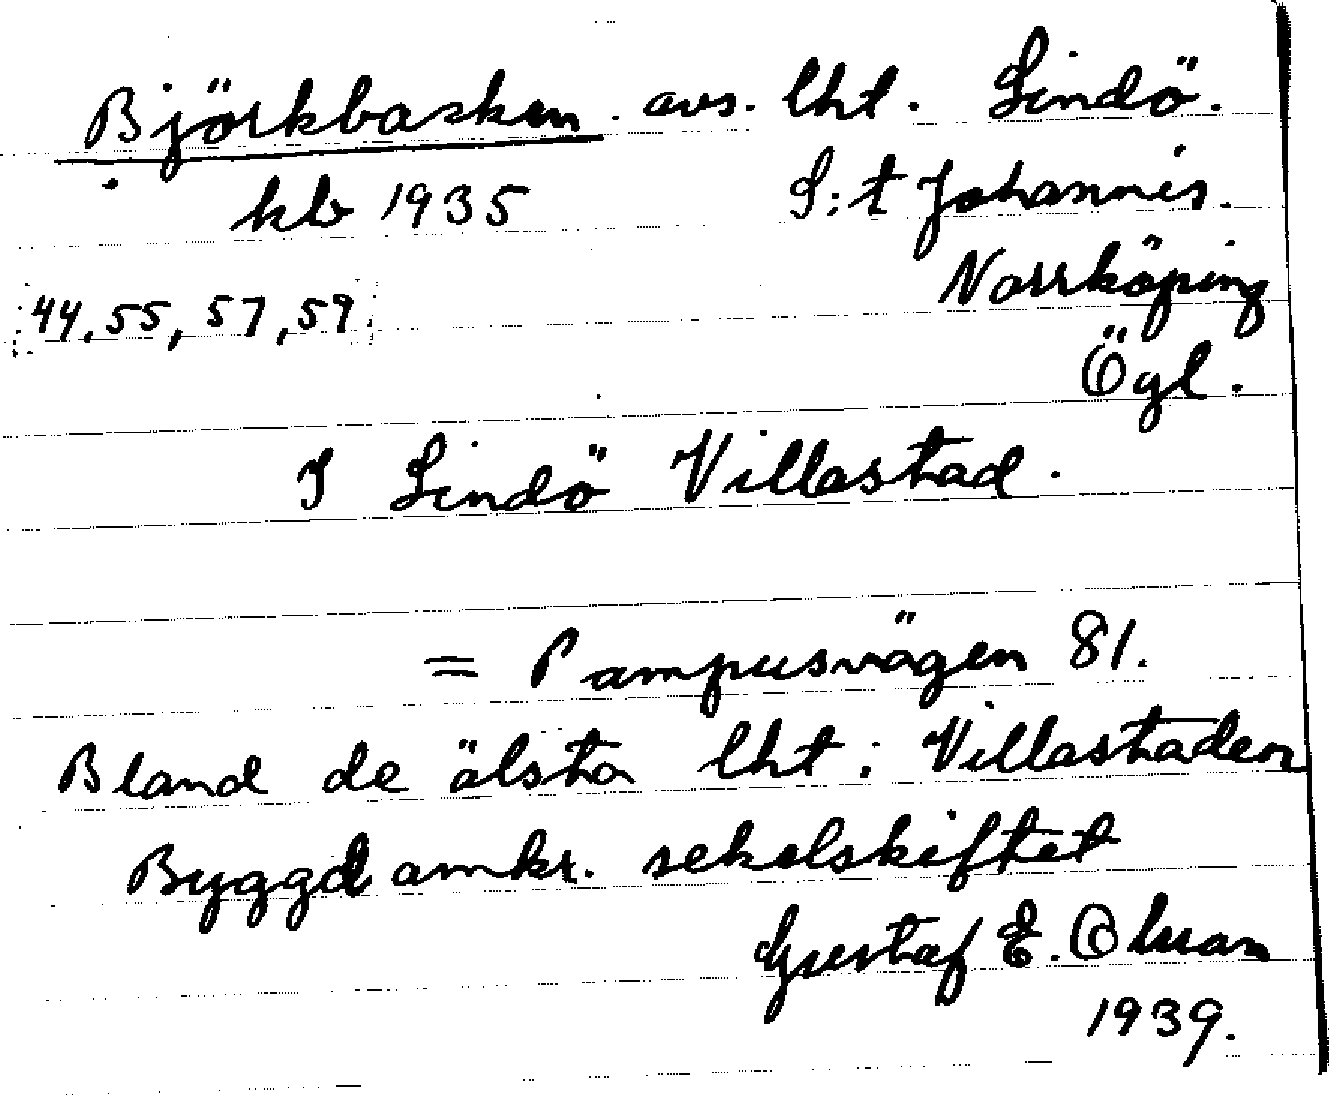 Björkbacken. avs. lht. Lindö.
kb 1935 S:t Johannis.
Norrköping
44, 55, 57, 59
Ögl.
I Lindö Villastad.
= Pampusvägen 81.
Bland de älsta lht i Villastaden
Byggd omkr. sekelskiftet
Gustaf E. Olson
1939.